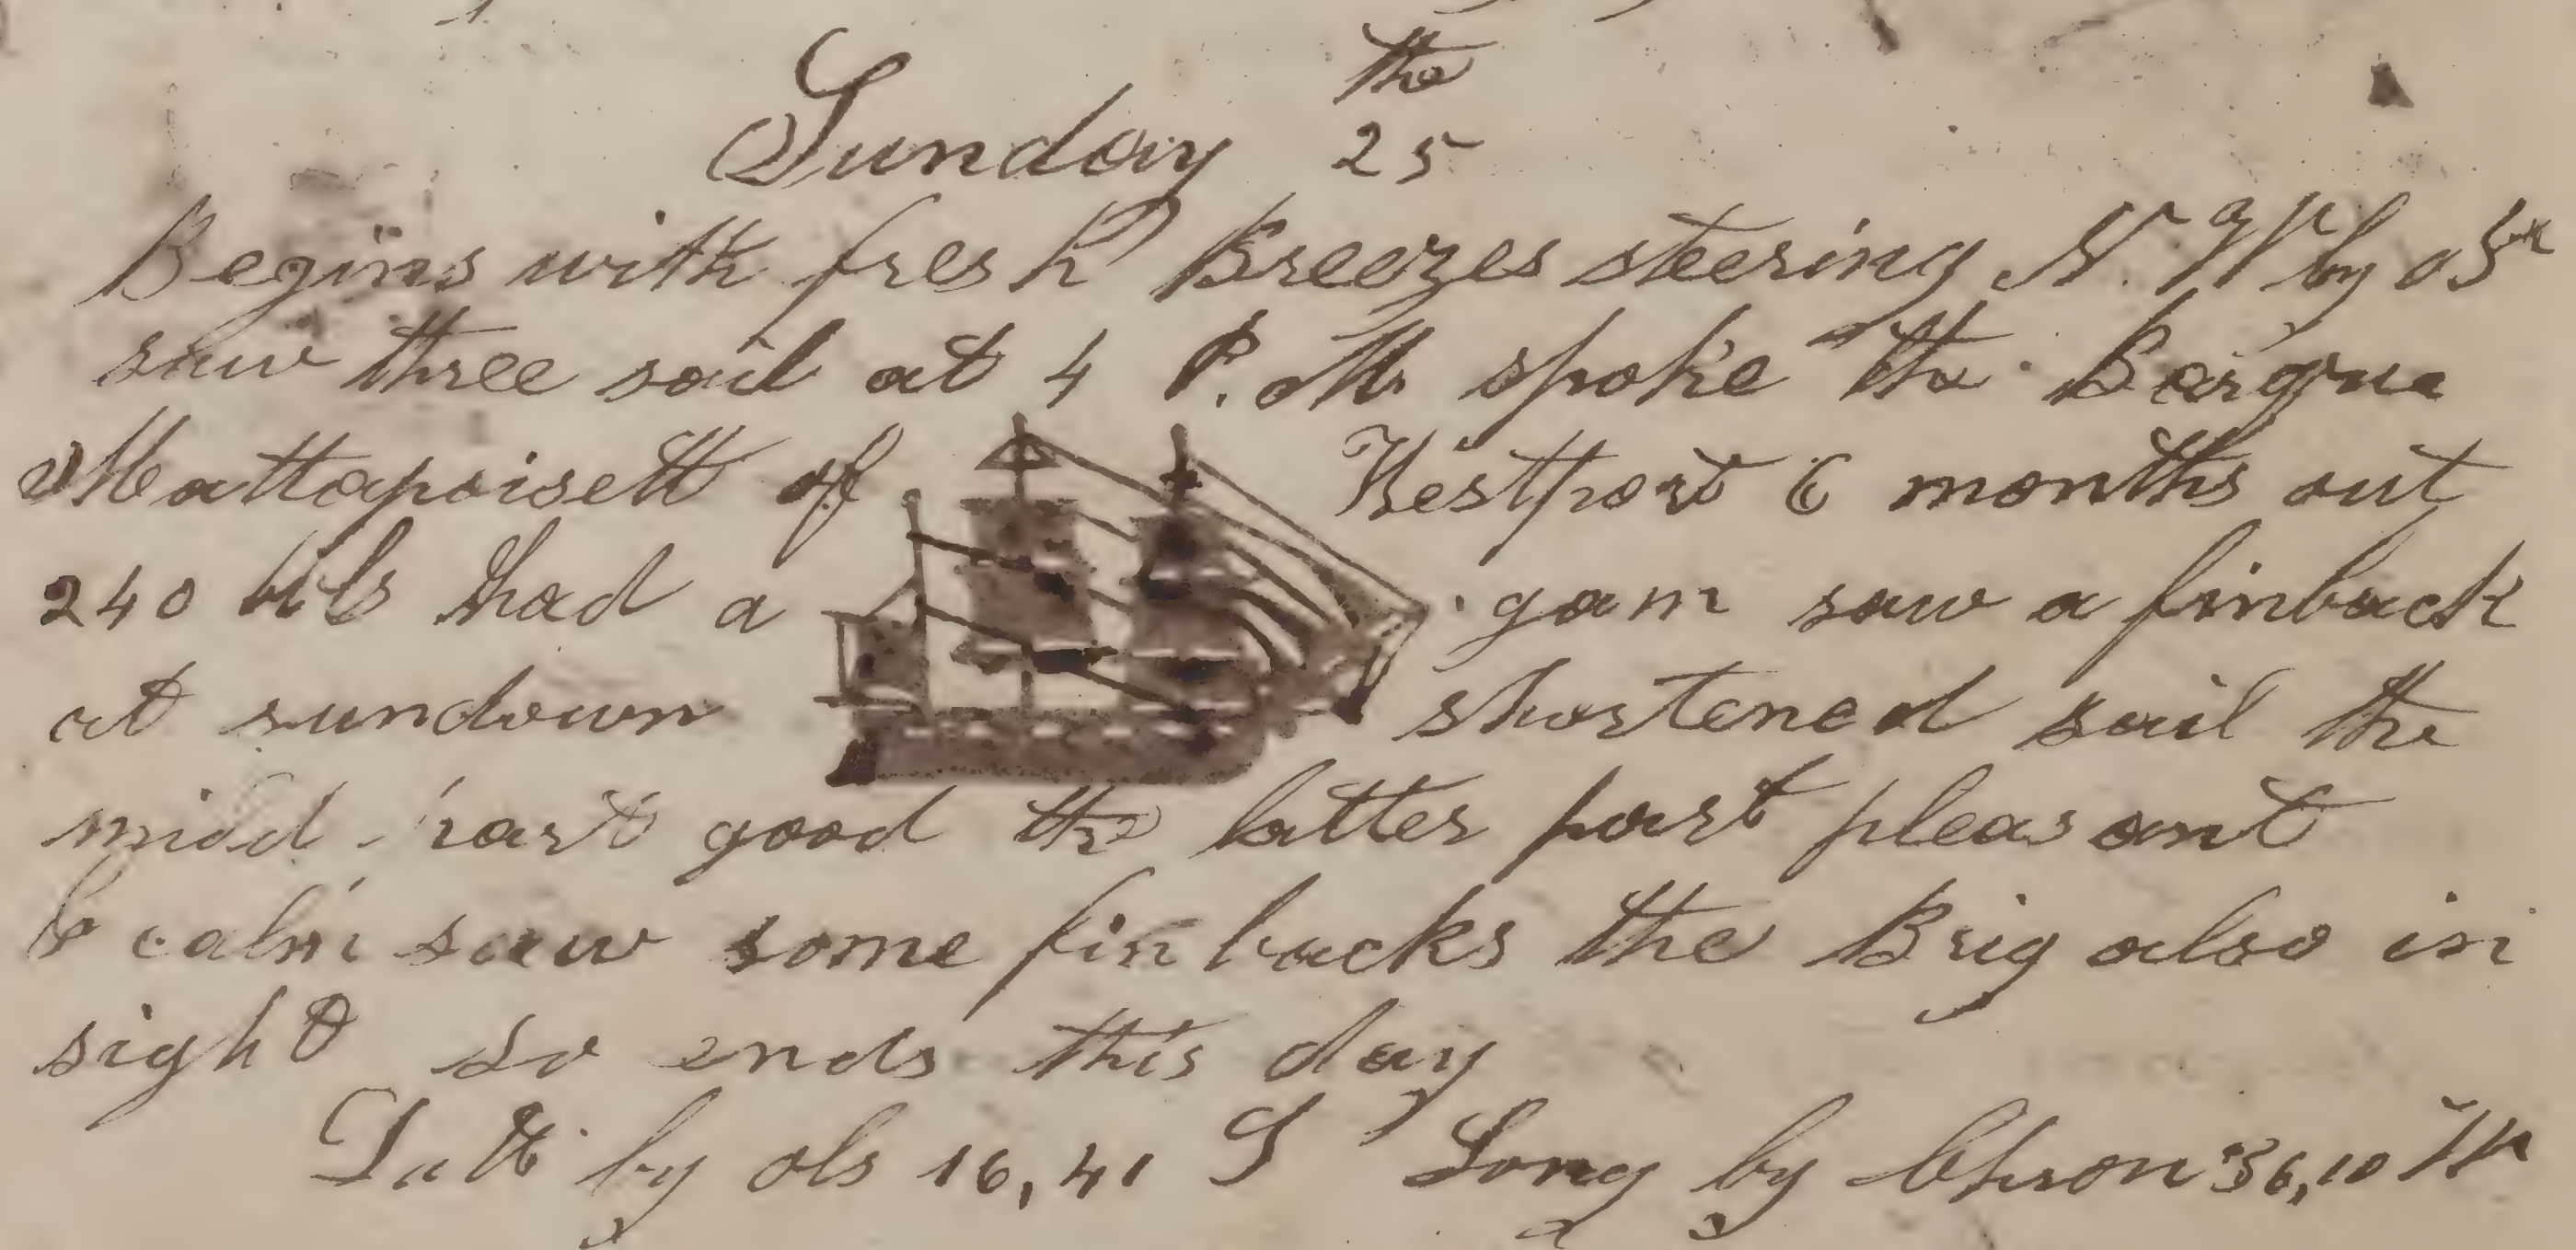 Sunday the 25
Begins with fresh Breezes steering N. W by
saw three sail at 4 P. M. spoke the
Mattapoisett of Westport 6 months out
240 bbls had a gam saw a finback
at sundown shortened sail the
midd part good the latter part pleasant
& calm saw some finbacks the Brig also in
sight so ends this day
Latt by obs 16,41 S Long by Chron 36,10 W